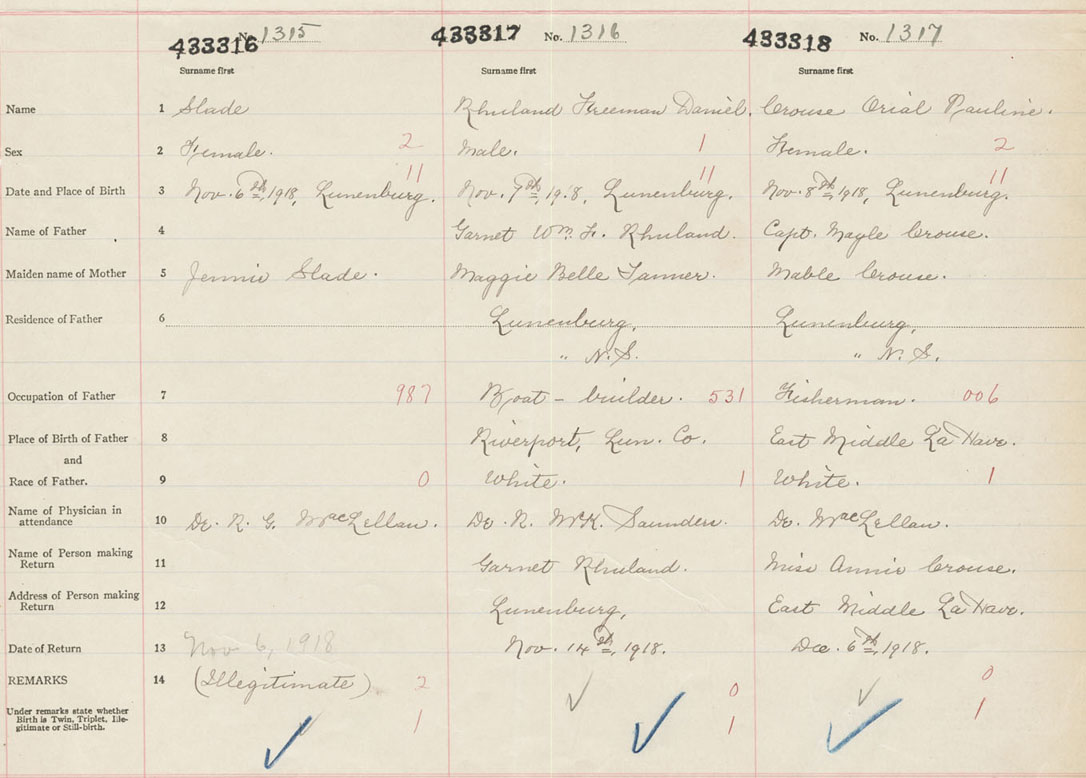 433316 No. 1315 433317 No. 1316 433318 No. 1317
Surname first Surname first Surname first
Name 1 Slade Rhuland Freeman Daniel. Crouse Orial Pauline.
Sex 2 Female. 2 Male. 1 Female. 2
11 11 11
Date and Place of Birth 3 Nov. 6th, 1918, Lunenburg. Nov. 7th, 1918, Lunenburg. Nov. 8th, 1918, Lunenburg.
Name of Father 4 Garnet Wm. F. Rhuland. Capt. Mayle Crouse.
Maiden name of Mother 5 Jennie Slade. Maggie Belle Tanner. Mable Crouse.
Residence of Father 6 Lunenburg, Lunenburg,
" N.S. " N.S.
Occupation of Father 7 987 Boat-builder. 531 Fisherman. 006
Place of Birth of Father 8 Riverport, Lun. Co. East Middle La Have.
and
Race of Father. 9 0 White. 1 White. 1
Name of Physician in
attendance 10 Dr. R. G. MacLellan. Dr. R. McK. Saunders. Dr. MacLellan.
Name of Person making
Return 11 Garnet Rhuland. Miss Annie Crouse.
Address of Person making
Return 12 Lunenburg, East Middle La Have.
Date of Return 13 Nov 6, 1918 Nov. 14th, 1918. Dec. 6th, 1918.
REMARKS 14 (Illegitimate) 2 0 0
Under remarks state whether
Birth is Twin, Triplet, Ille-
gitimate or Still-birth. 1 1 1